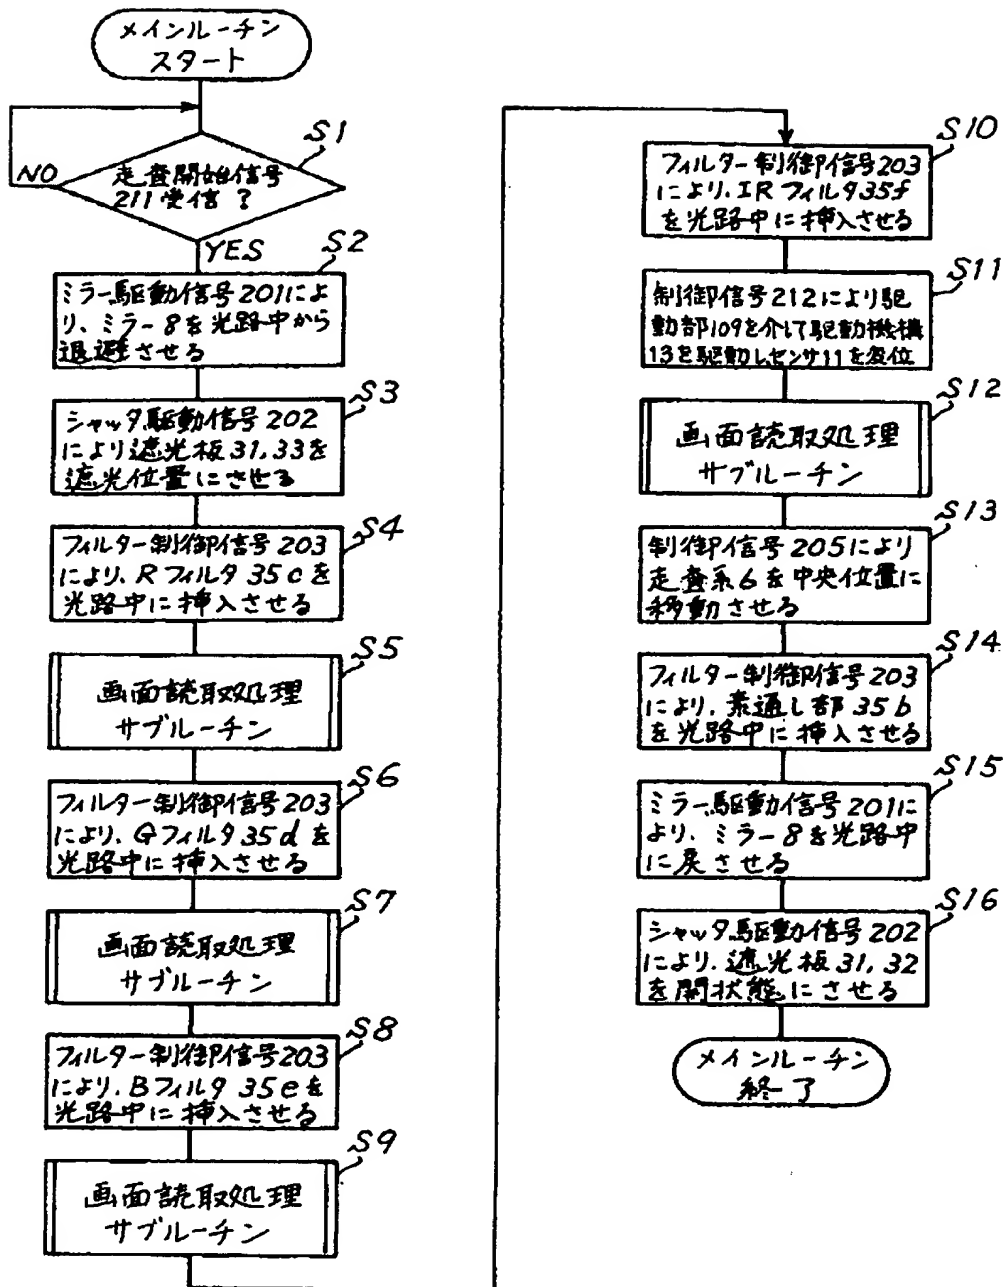 メインルーチン
スタート
S1
走査開始信号
211受信?
NO
YES
S2
ミラー駆動信号201によ
り、ミラー8を光路中から
退避させる
S3
シャッタ駆動信号202
により遮光板31,33を
遮光位置にさせる
S4
フィルター制御信号203
により、Rフィルタ35cを
光路中に挿入させる
S5
画面読取処理
サブルーチン
S6
フィルター制御信号203
により、Gフィルタ35dを
光路中に挿入させる
S7
画面読取処理
サブルーチン
S8
フィルター制御信号203
により、Bフィルタ35eを
光路中に挿入させる
S9
画面読取処理
サブルーチン
S10
フィルター制御信号203
により、IRフィルタ35f
を光路中に挿入させる
S11
制御信号212により駆
動部109を介して駆動機構
13を駆動しセンサ11を変位
S12
画面読取処理
サブルーチン
S13
制御信号205により
走査系6を中央位置に
移動させる
S14
フィルター制御信号203
により、素通し部35b
を光路中に挿入させる
S15
ミラー駆動信号201に
より、ミラー8を光路中
に戻させる
S16
シャッタ駆動信号202
により、遮光板31,32
を開状態にさせる
メインルーチン
終了